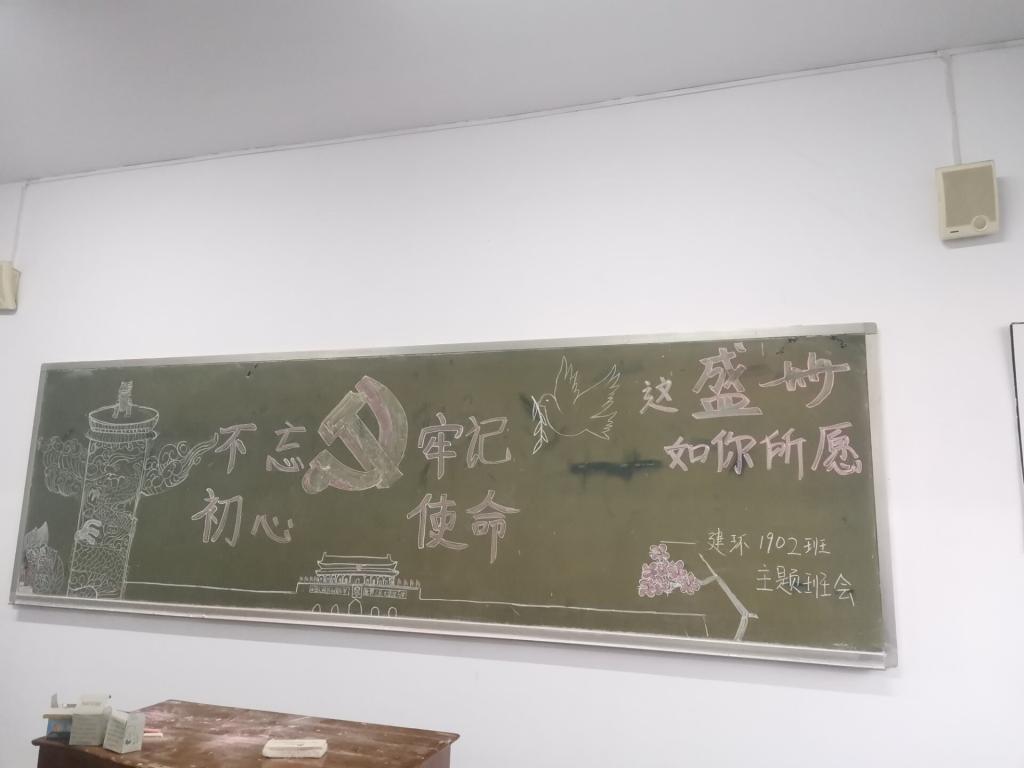 不忘 牢记
初心 使命
这盛世
如你所愿
建环1902班
主题班会